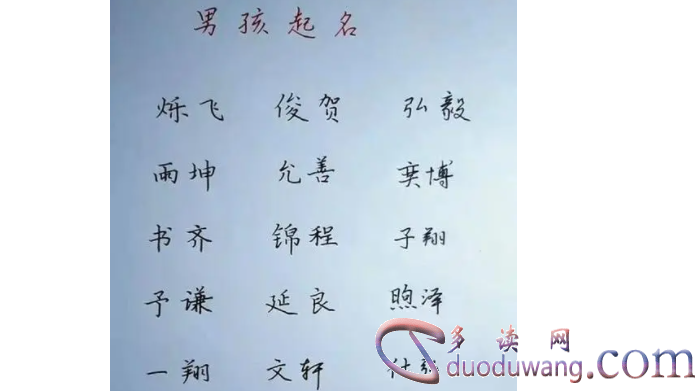 男孩起名
烁飞 俊贺 弘毅
雨坤 允善 奕博
书齐 锦程 子翔
予谦 延良 煦泽
一翔 文轩
多读网
duoduwang.com